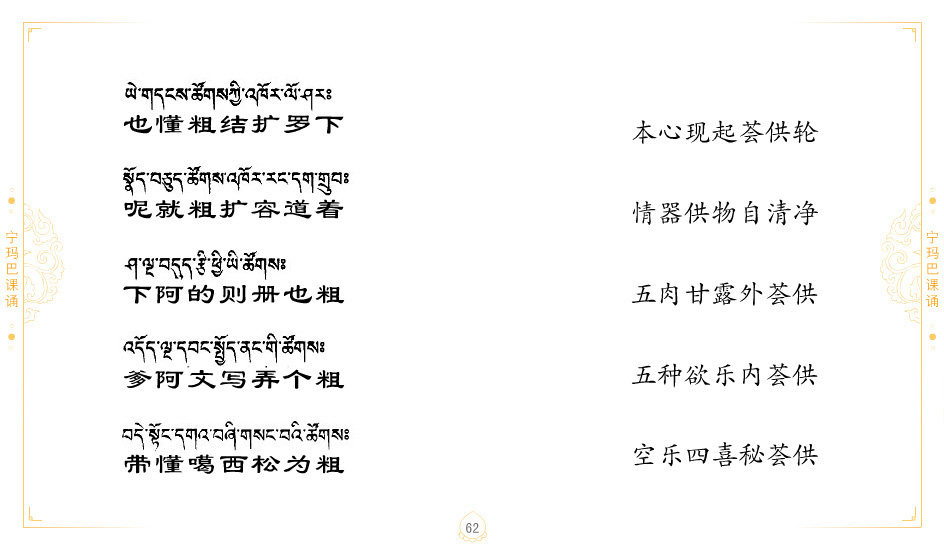 ཡེ་གདངས་ཚོགས་ཀྱི་འཁོར་ལོ་ཤར༔
也懂粗结扩罗下
本心现起荟供轮
སྣོད་བཅུད་ཚོགས་འཁོར་རང་དག་གྲུབ༔
呢就粗扩容道着
情器供物自清净
ཤ་ལྔ་བདུད་རྩི་ཕྱི་ཡི་ཚོགས༔
下阿的则册也粗
五肉甘露外荟供
འདོད་ལྔ་དབང་སྤྱོད་ནང་གི་ཚོགས༔
爹阿文写弄个粗
五种欲乐内荟供
བདེ་སྟོང་དགའ་བཞི་གསང་བའི་ཚོགས༔
带懂噶西松为粗
空乐四喜秘荟供
宁玛巴课诵
宁玛巴课诵
62